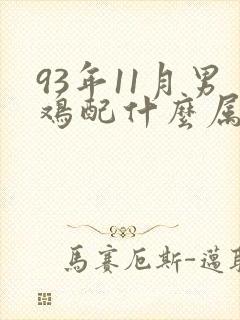 93年11月男
鸡配什麼属
馬賽厄斯-邁